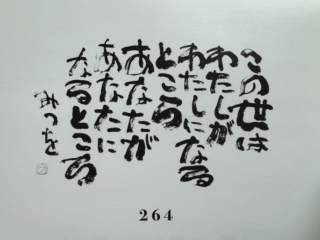 この世は
わたしが
わたしになる
ところ
あなたが
あなたに
なるところ
みつを
264